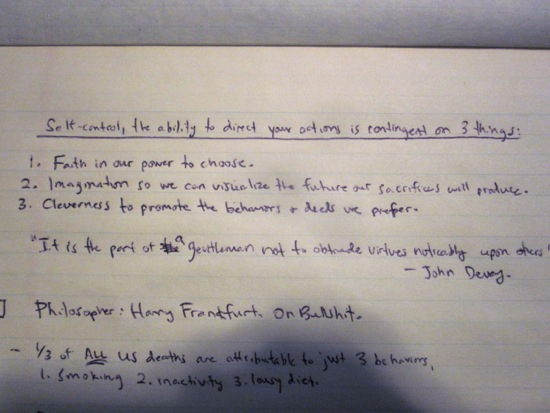 Self-control, the ability to direct your actions is contingent on 3 things:
1. Faith in our power to choose.
2. Imagination so we can visualize the future our sacrifices will produce.
3. Cleverness to promote the behaviors + deeds we prefer.
"It is the part of a gentleman not to obtrude virtues noticeably upon others"
- John Dewey.
Philosopher: Harry Frankfurt. On Bullshit.
- 1/3 of ALL US deaths are attributable to just 3 behaviors,
1. Smoking 2. inactivity 3. lousy diet.